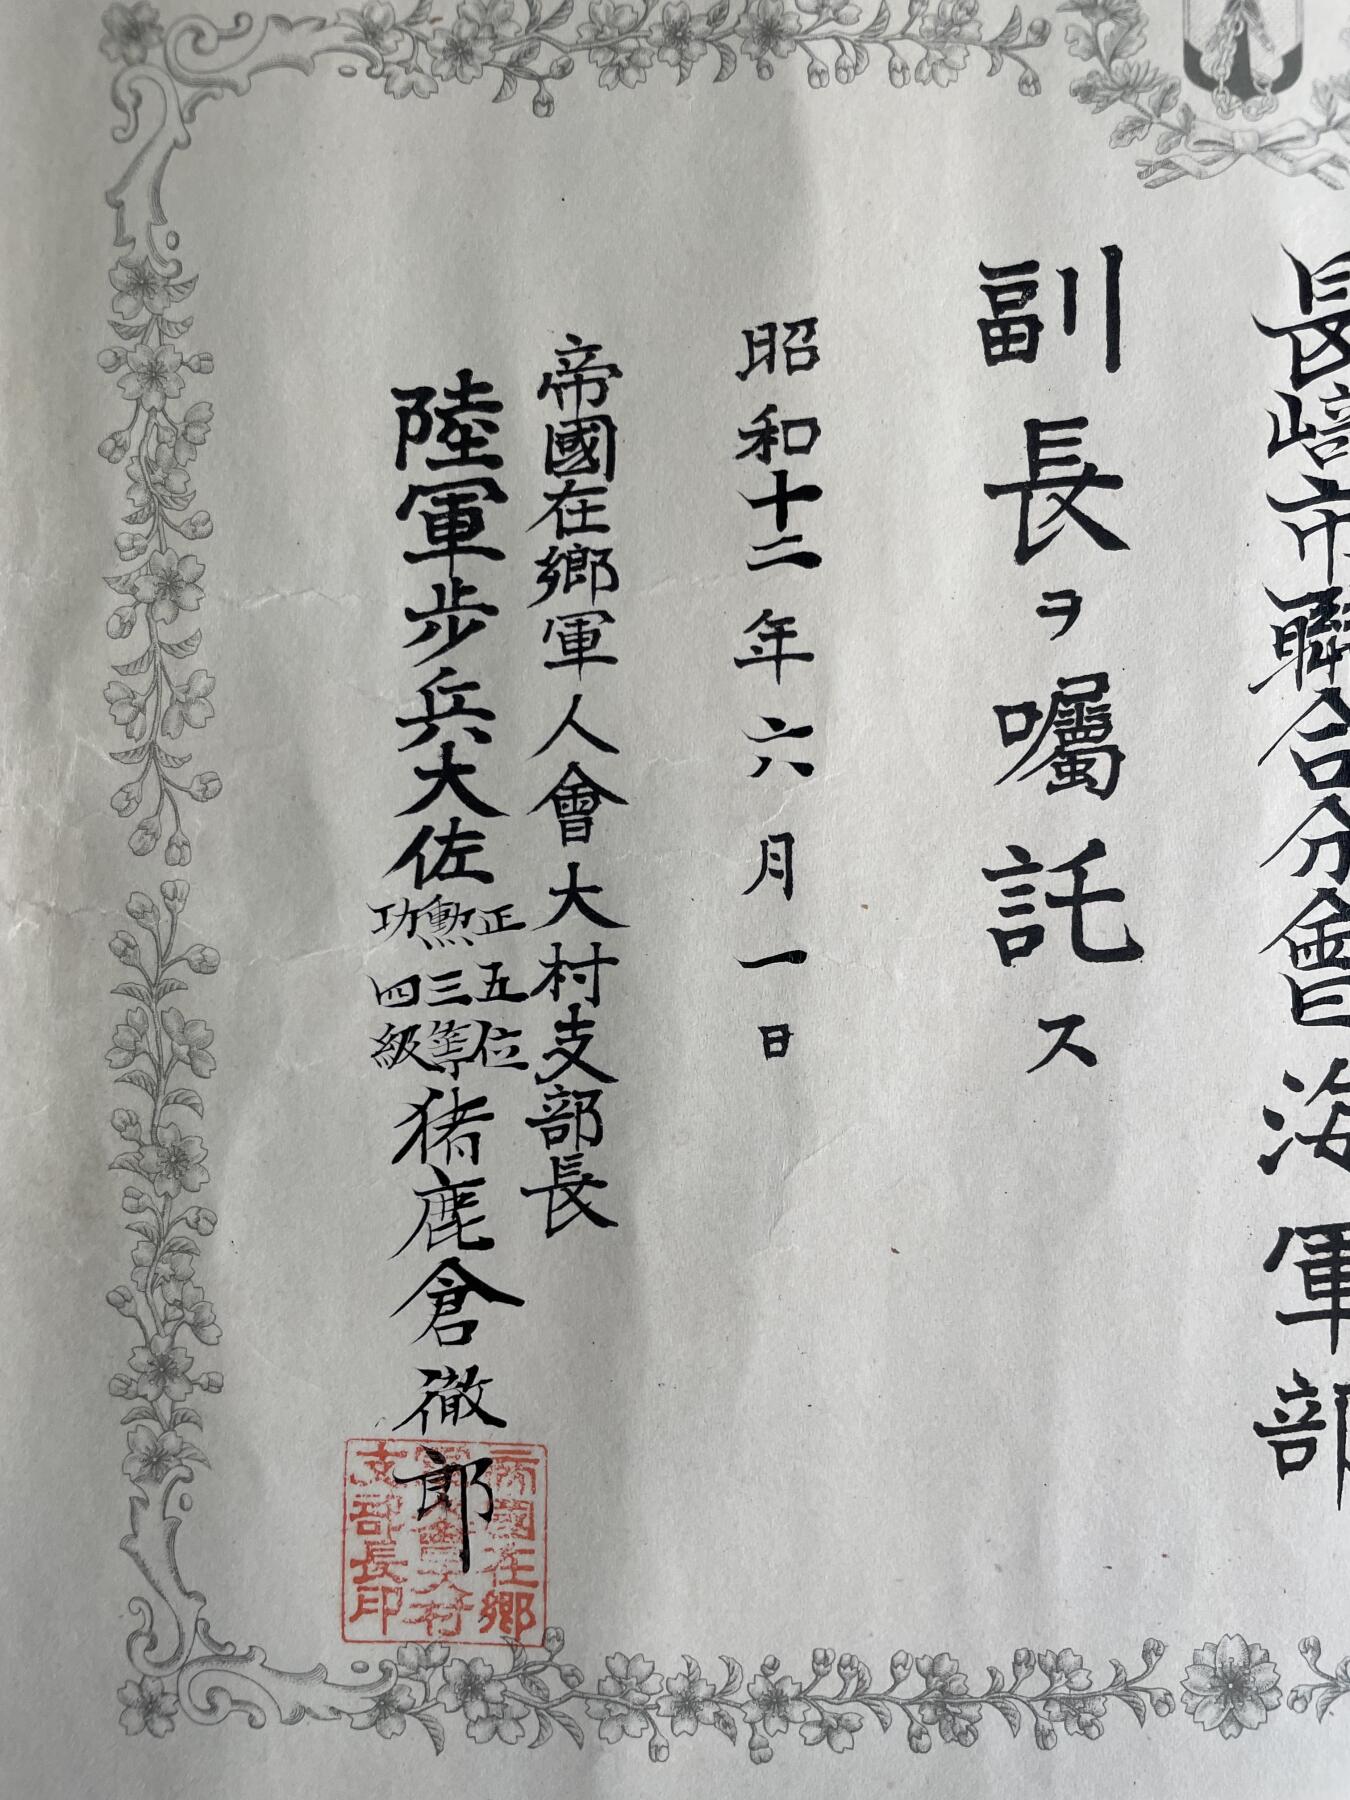 長崎市聯合分會海軍部
副長ヲ囑託ス
昭和十二年六月一日
帝國在鄉軍人會大村支部長
陸軍步兵大佐
正五位
勳三等
功四級
猪鹿倉徹郎
帝國在鄉
軍人會大村
支部長印